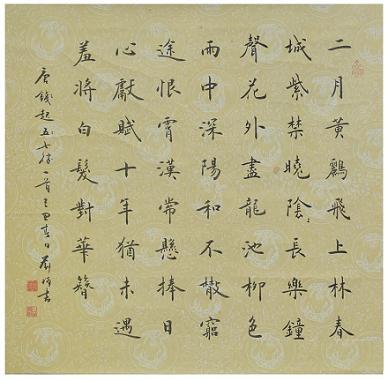 二月黃鸝飛上林春
城紫禁曉陰〻長樂鐘
聲花外盡龍池柳色
雨中深陽和不散窮
途恨霄漢常懸捧日
心獻賦十年猶未遇
羞將白髮對華簪
唐錢起七律一首己丑春日書